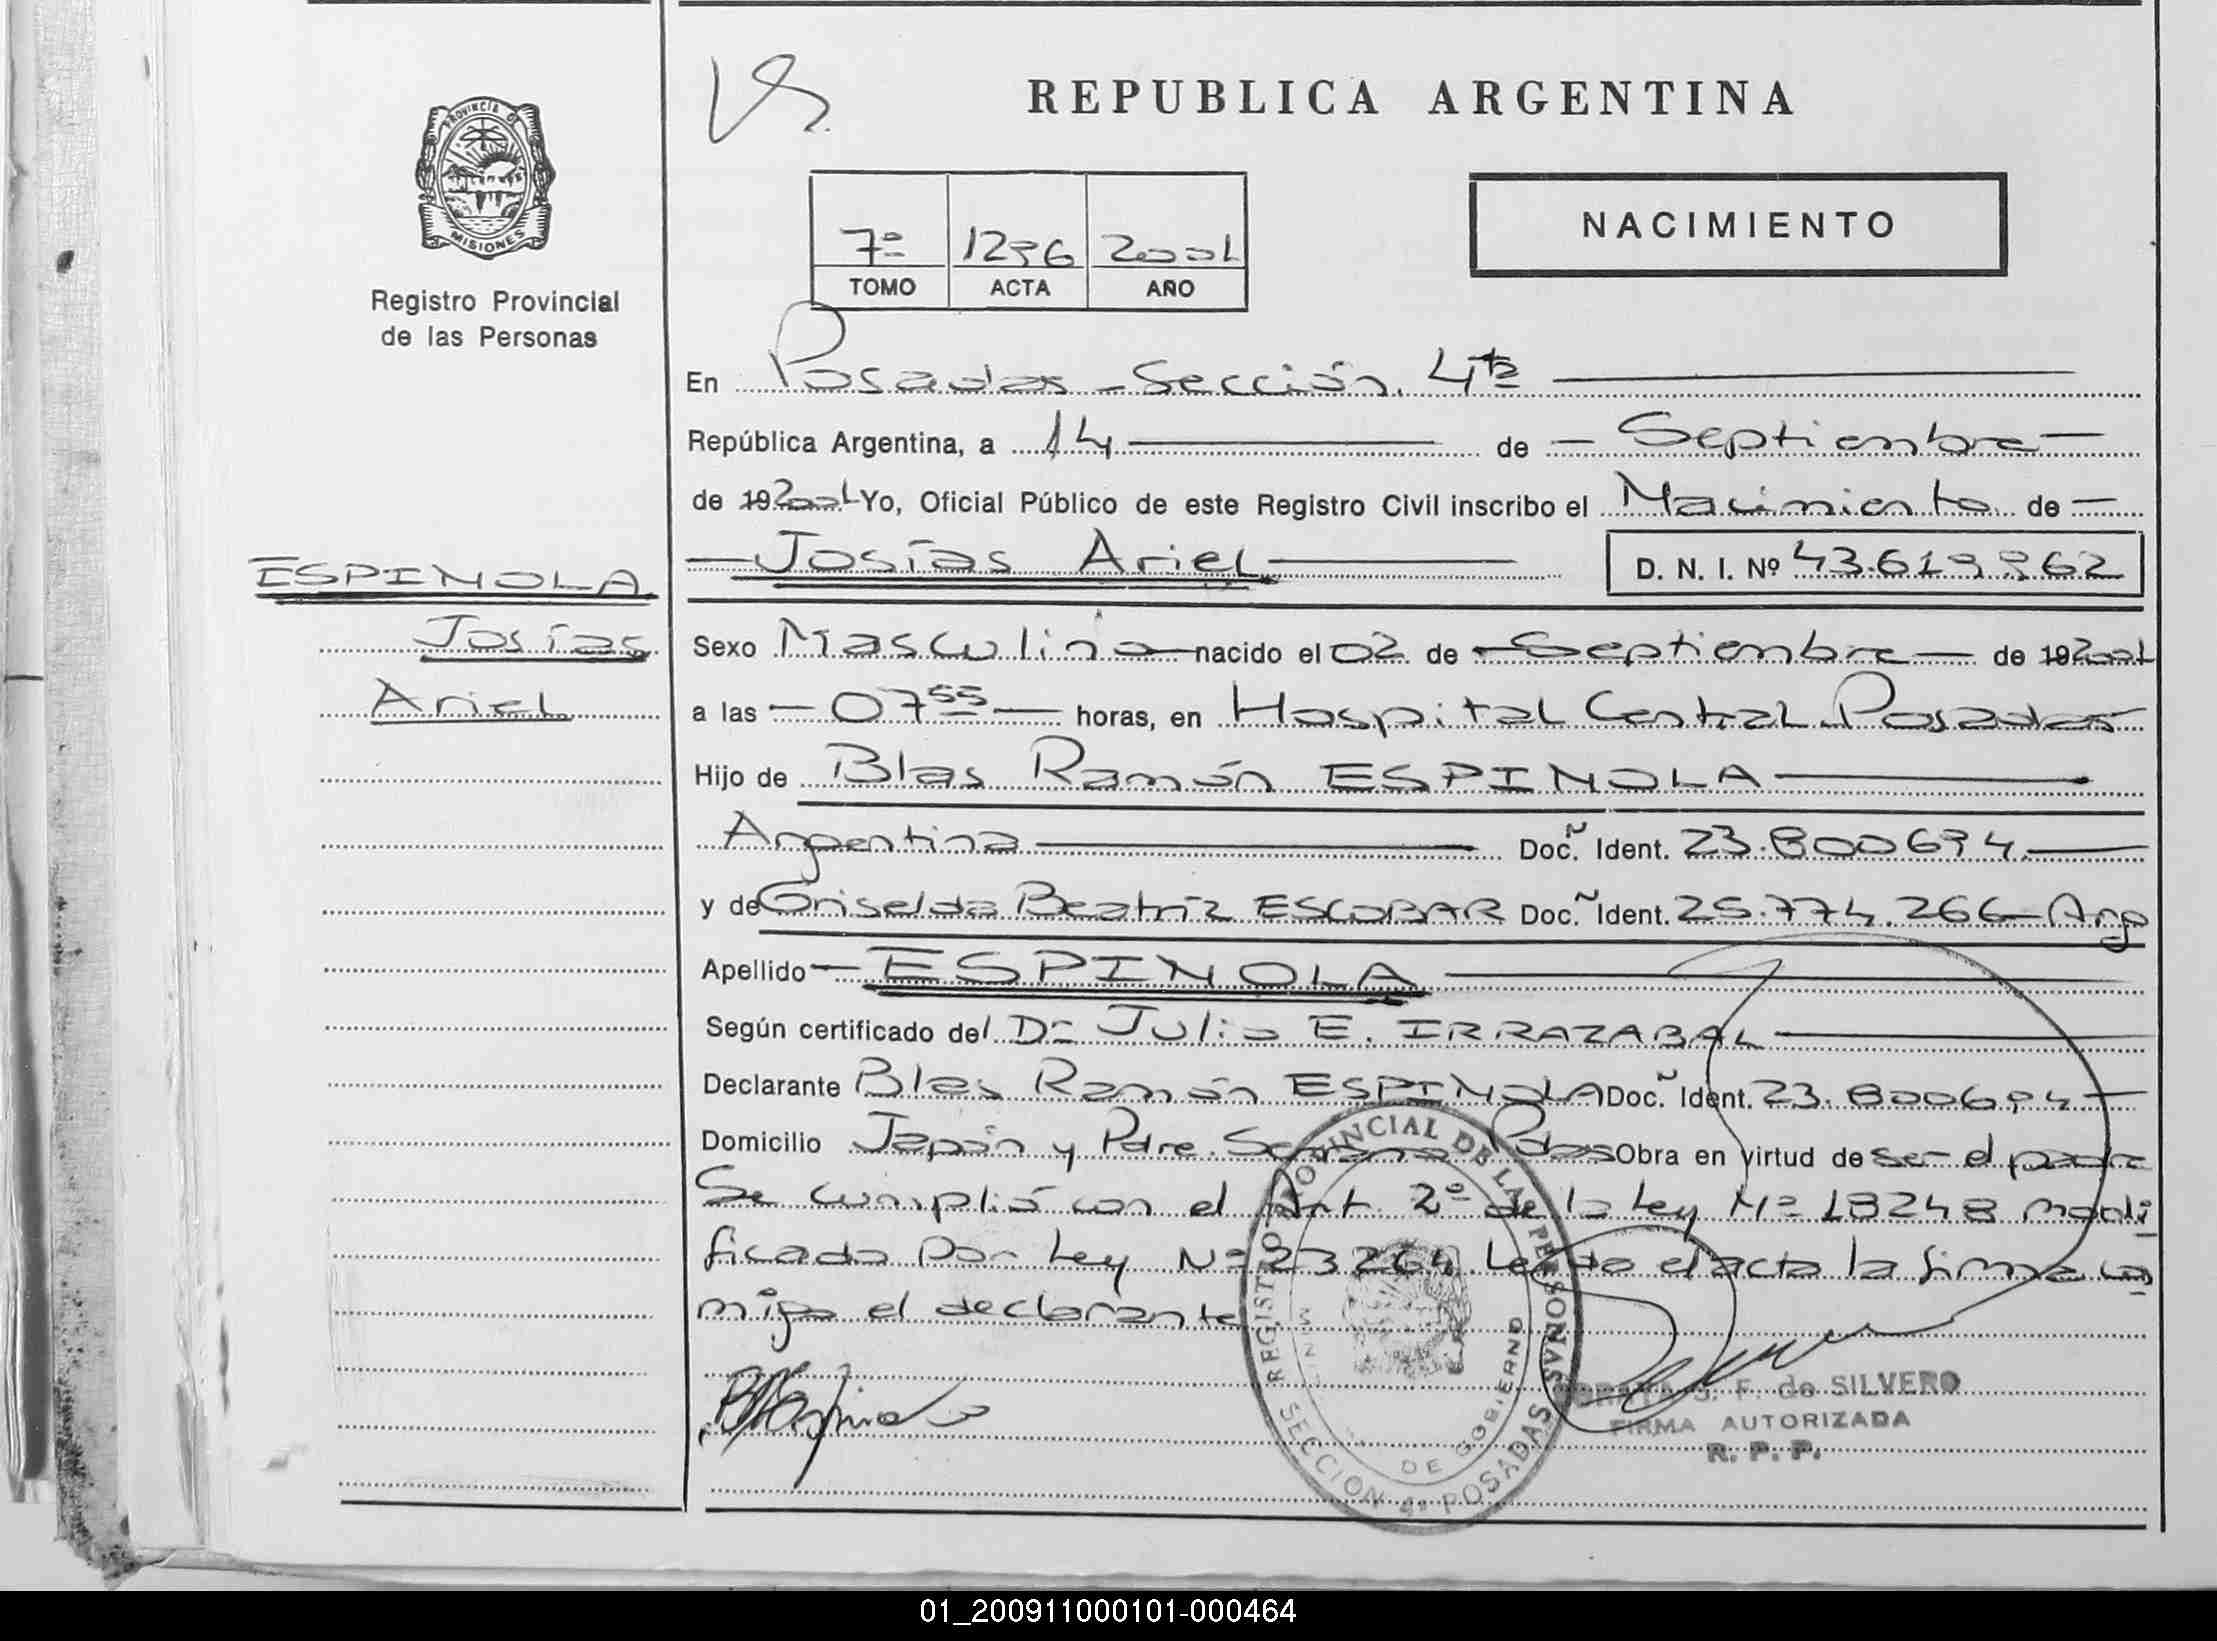 REPUBLICA ARGENTINA
PROVINCIA DE MISIONES
Registro Provincial
de las Personas
NACIMIENTO
7º 1296 2001
TOMO ACTA AÑO
En Posadas - Sección 4ta
República Argentina, a 14 de Septiembre
de 19 2001 Yo, Oficial Público de este Registro Civil inscribo el Nacimiento de
Josías Ariel D. N. I. Nº 43.619.962
ESPINOLA
Josías
Ariel
Sexo Masculino nacido el 02 de Septiembre de 19 2001
a las 07 55 horas, en Hospital Central Posadas
Hijo de Blas Ramón ESPINOLA
Argentina Doc. Ident. 23.800694
y de Griselda Beatriz ESCOBAR Doc. Ident. 25.774.266 Arg
Apellido ESPINOLA
Según certificado del Dr Julio E. IRRAZABAL
Declarante Blas Ramón ESPINOLA Doc. Ident. 23.800694
Domicilio Japón y Pdre. Serrano Pdas Obra en virtud de ser el padre
Se cumplió con el Art. 2º de la Ley Nº 18248 modi
ficada por Ley Nº 23264. Leída el acta la firma con
migo el declarante
REGISTRO PROVINCIAL DE LAS PERSONAS
DE GOBIERNO
SECCION 4ª POSADAS
S. F. de SILVERO
FIRMA AUTORIZADA
R. P. P.
01_200911000101-000464